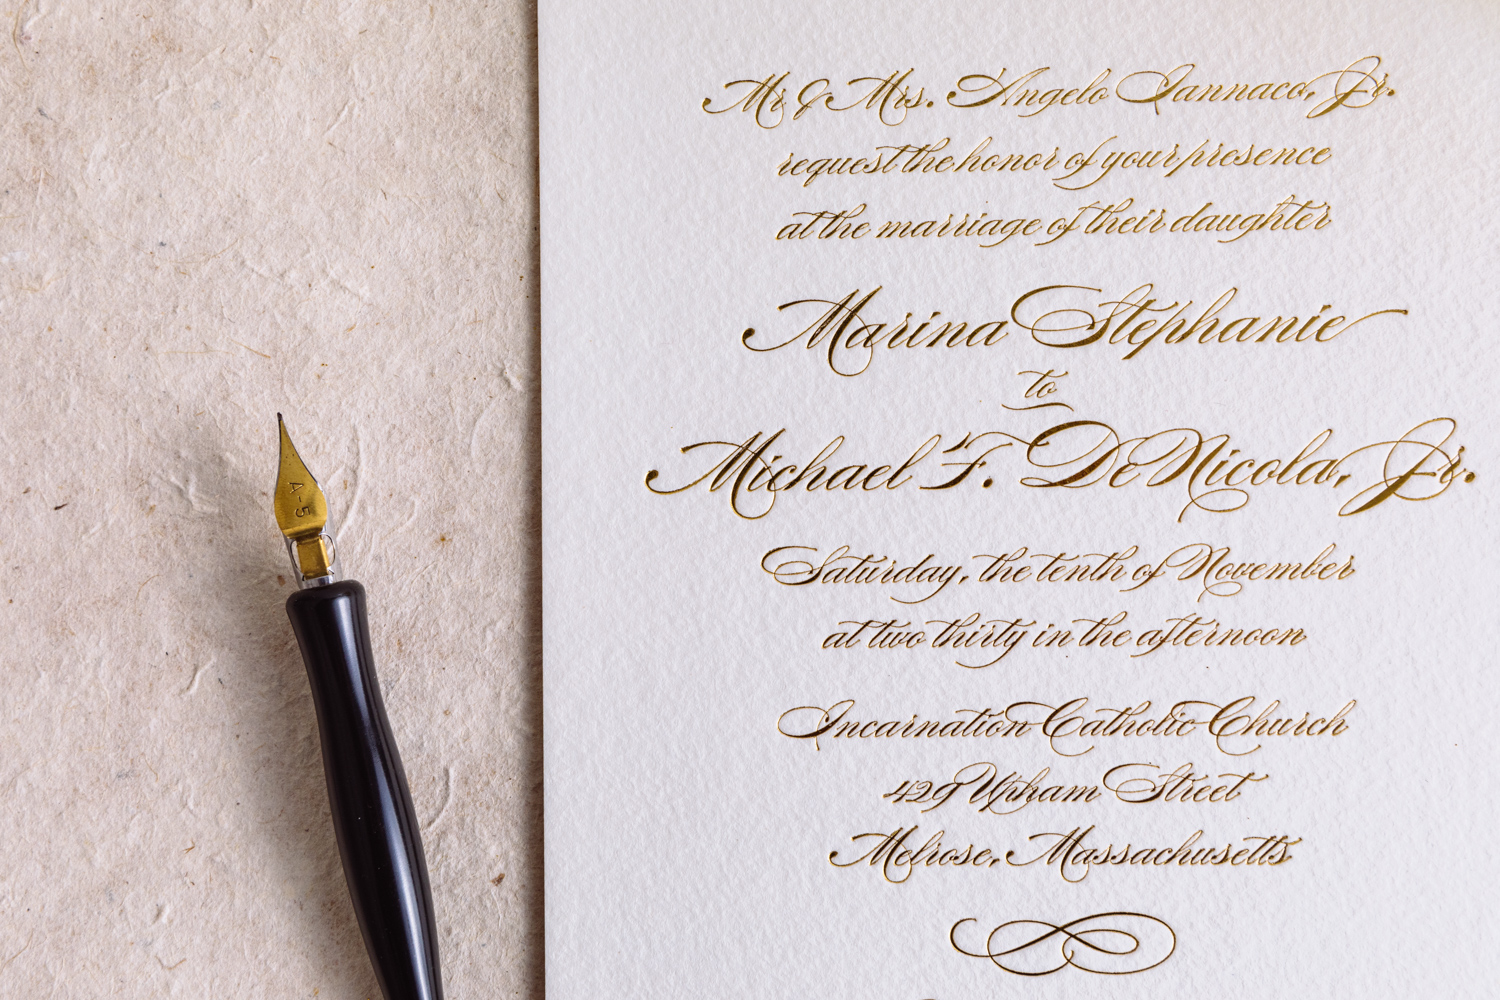 Mr & Mrs. Angelo Iannaco, Jr.
request the honor of your presence
at the marriage of their daughter
Marina Stephanie
to
Michael F. DeNicola, Jr.
Saturday, the tenth of November
at two thirty in the afternoon
Incarnation Catholic Church
429 Upham Street
Melrose, Massachusetts
A-5